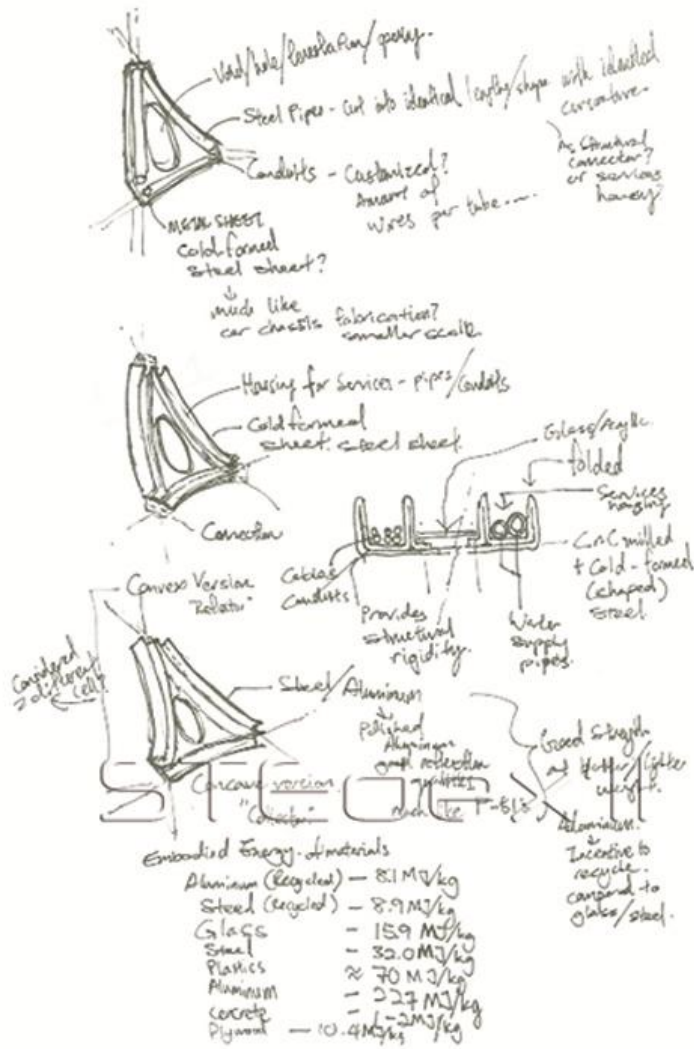 Void/hole/
Steel Pipes - cut into identical lengths/shape with identical
curvature.
As structural
connector?
or services
housing?
Conduits - Customized?
Amount of
wires per tube....
METAL SHEET
Cold-formed
steel sheet?
much like
car chassis fabrication?
smaller scale.
Housing for Services - pipes/conduits
Cold formed
sheet. steel sheet.
Connection
Glass/Acrylic.
folded
Services
housing
CNC milled
+ Cold-formed
(shaped)
Steel.
Cables
Conduits
Provides
structural
rigidity.
Water
supply
pipes.
Convex Version
Considered
2 different
cells
Steel/Aluminum
Polished
Aluminum
good reflection
qualities
much like
Good Strength
at lighter
weight.
Aluminum.
Incentive to
recycle.
compared to
glass/steel.
Concave version
"Collector"
Embodied Energy of materials
Aluminum (Recycled) - 8.1 MJ/kg
Steel (Recycled) - 8.9 MJ/kg
Glass - 15.9 MJ/kg
Steel - 32.0 MJ/kg
Plastics ≈ 70 MJ/kg
Aluminum - 227 MJ/kg
Concrete - 1-2 MJ/kg
Plywood - 10.4 MJ/kg